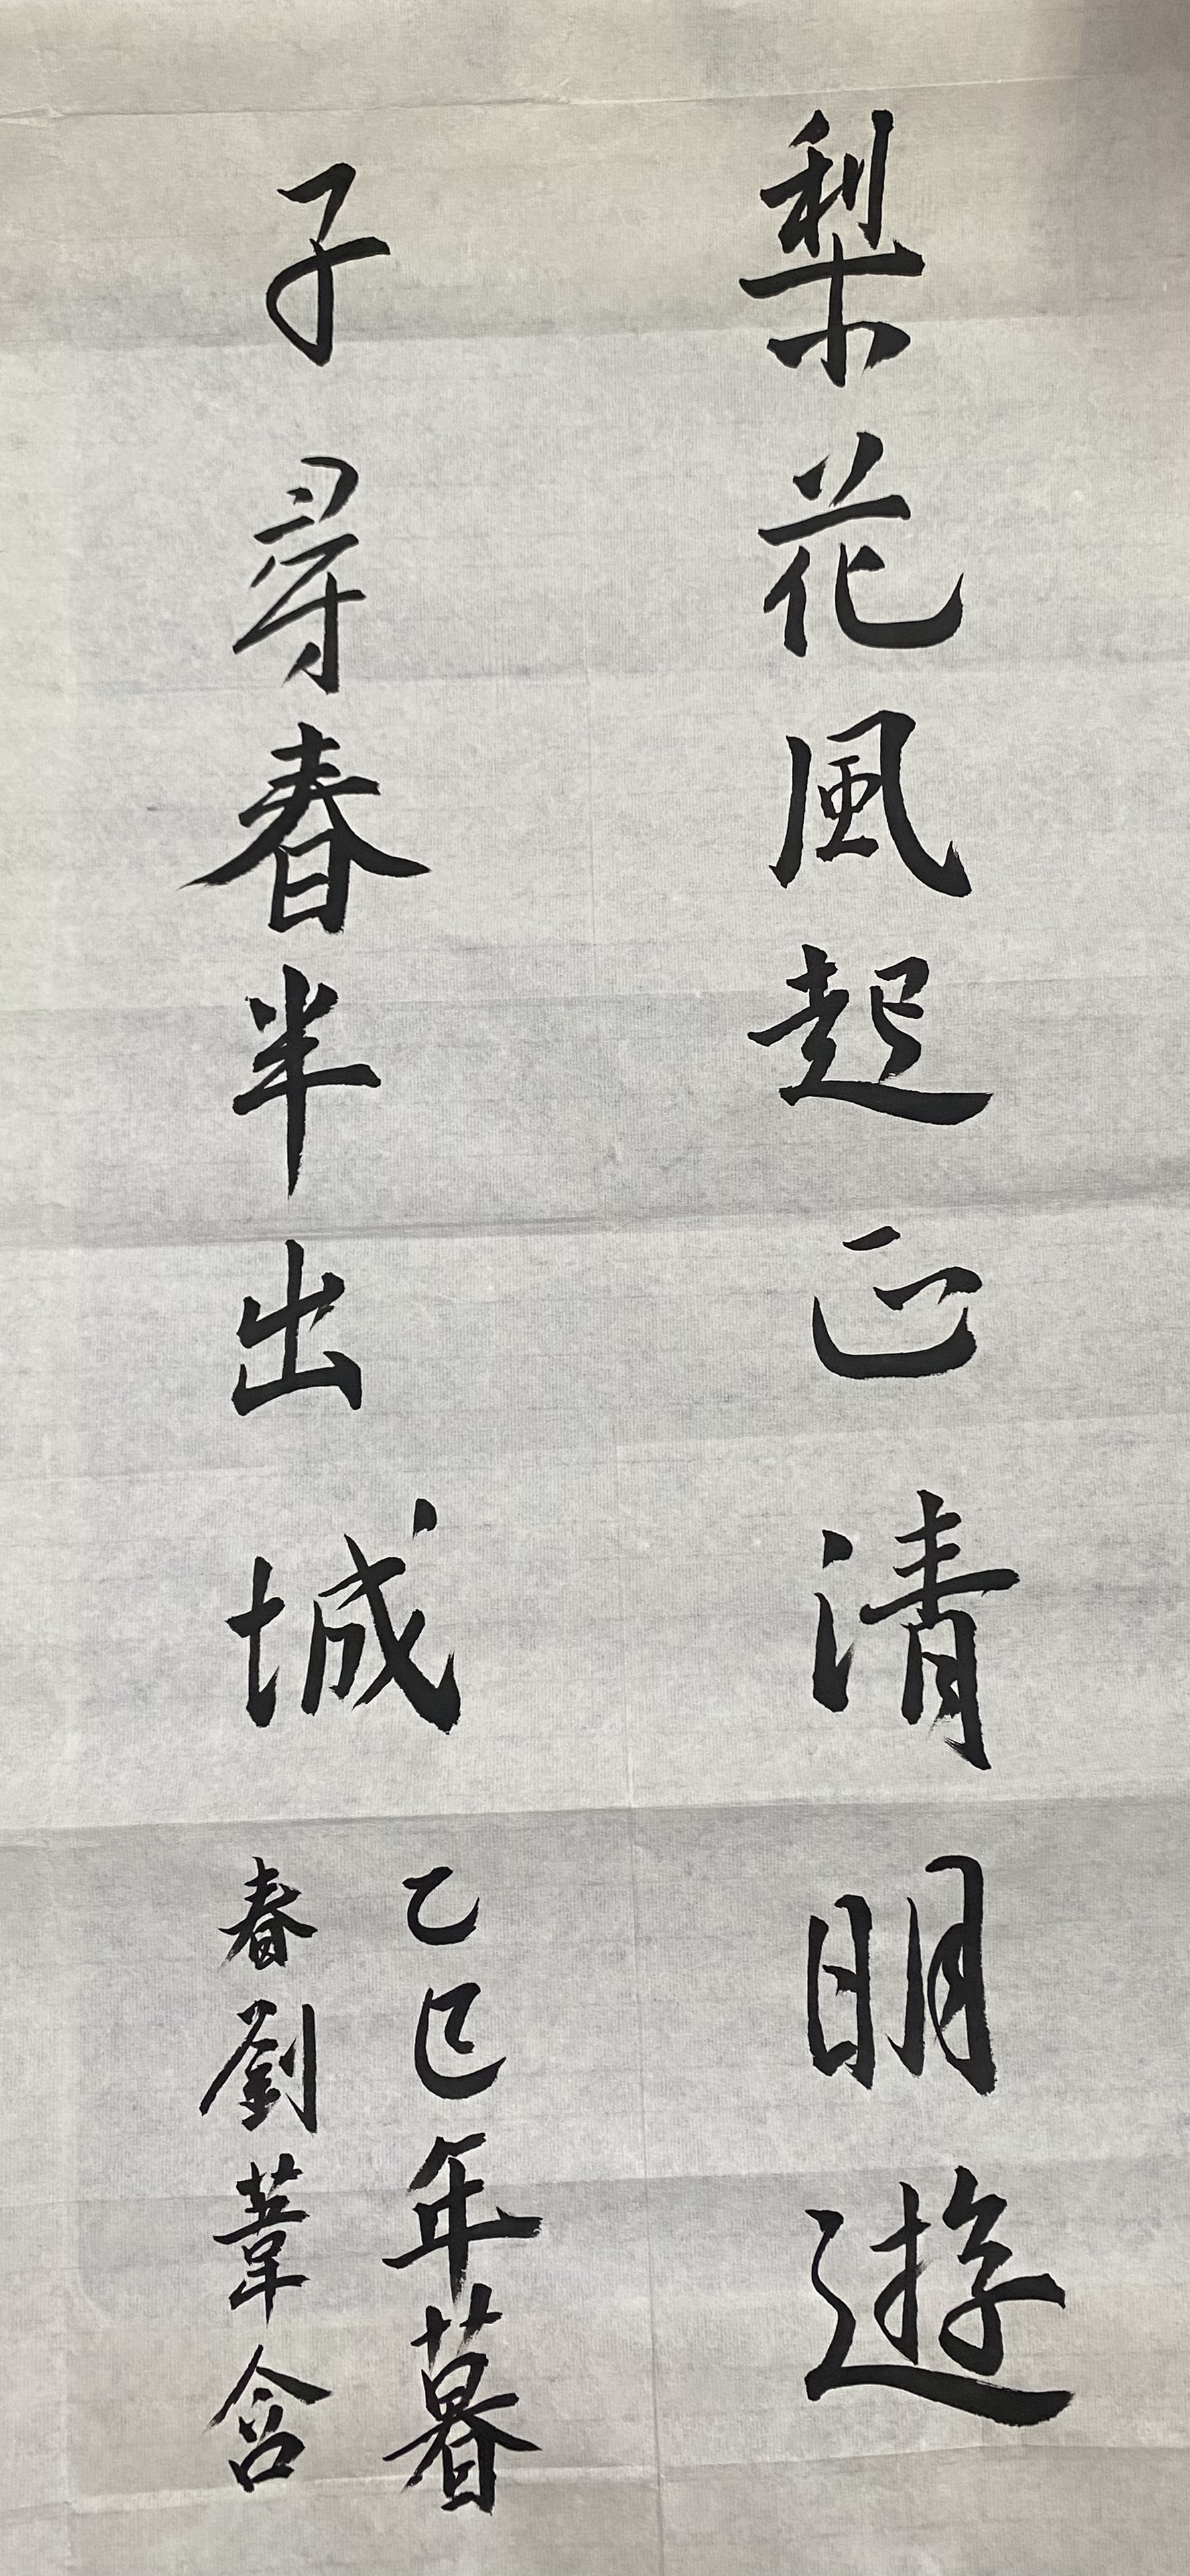 梨花風起正清明遊
子尋春半出城
乙巳年暮
春劉葦含